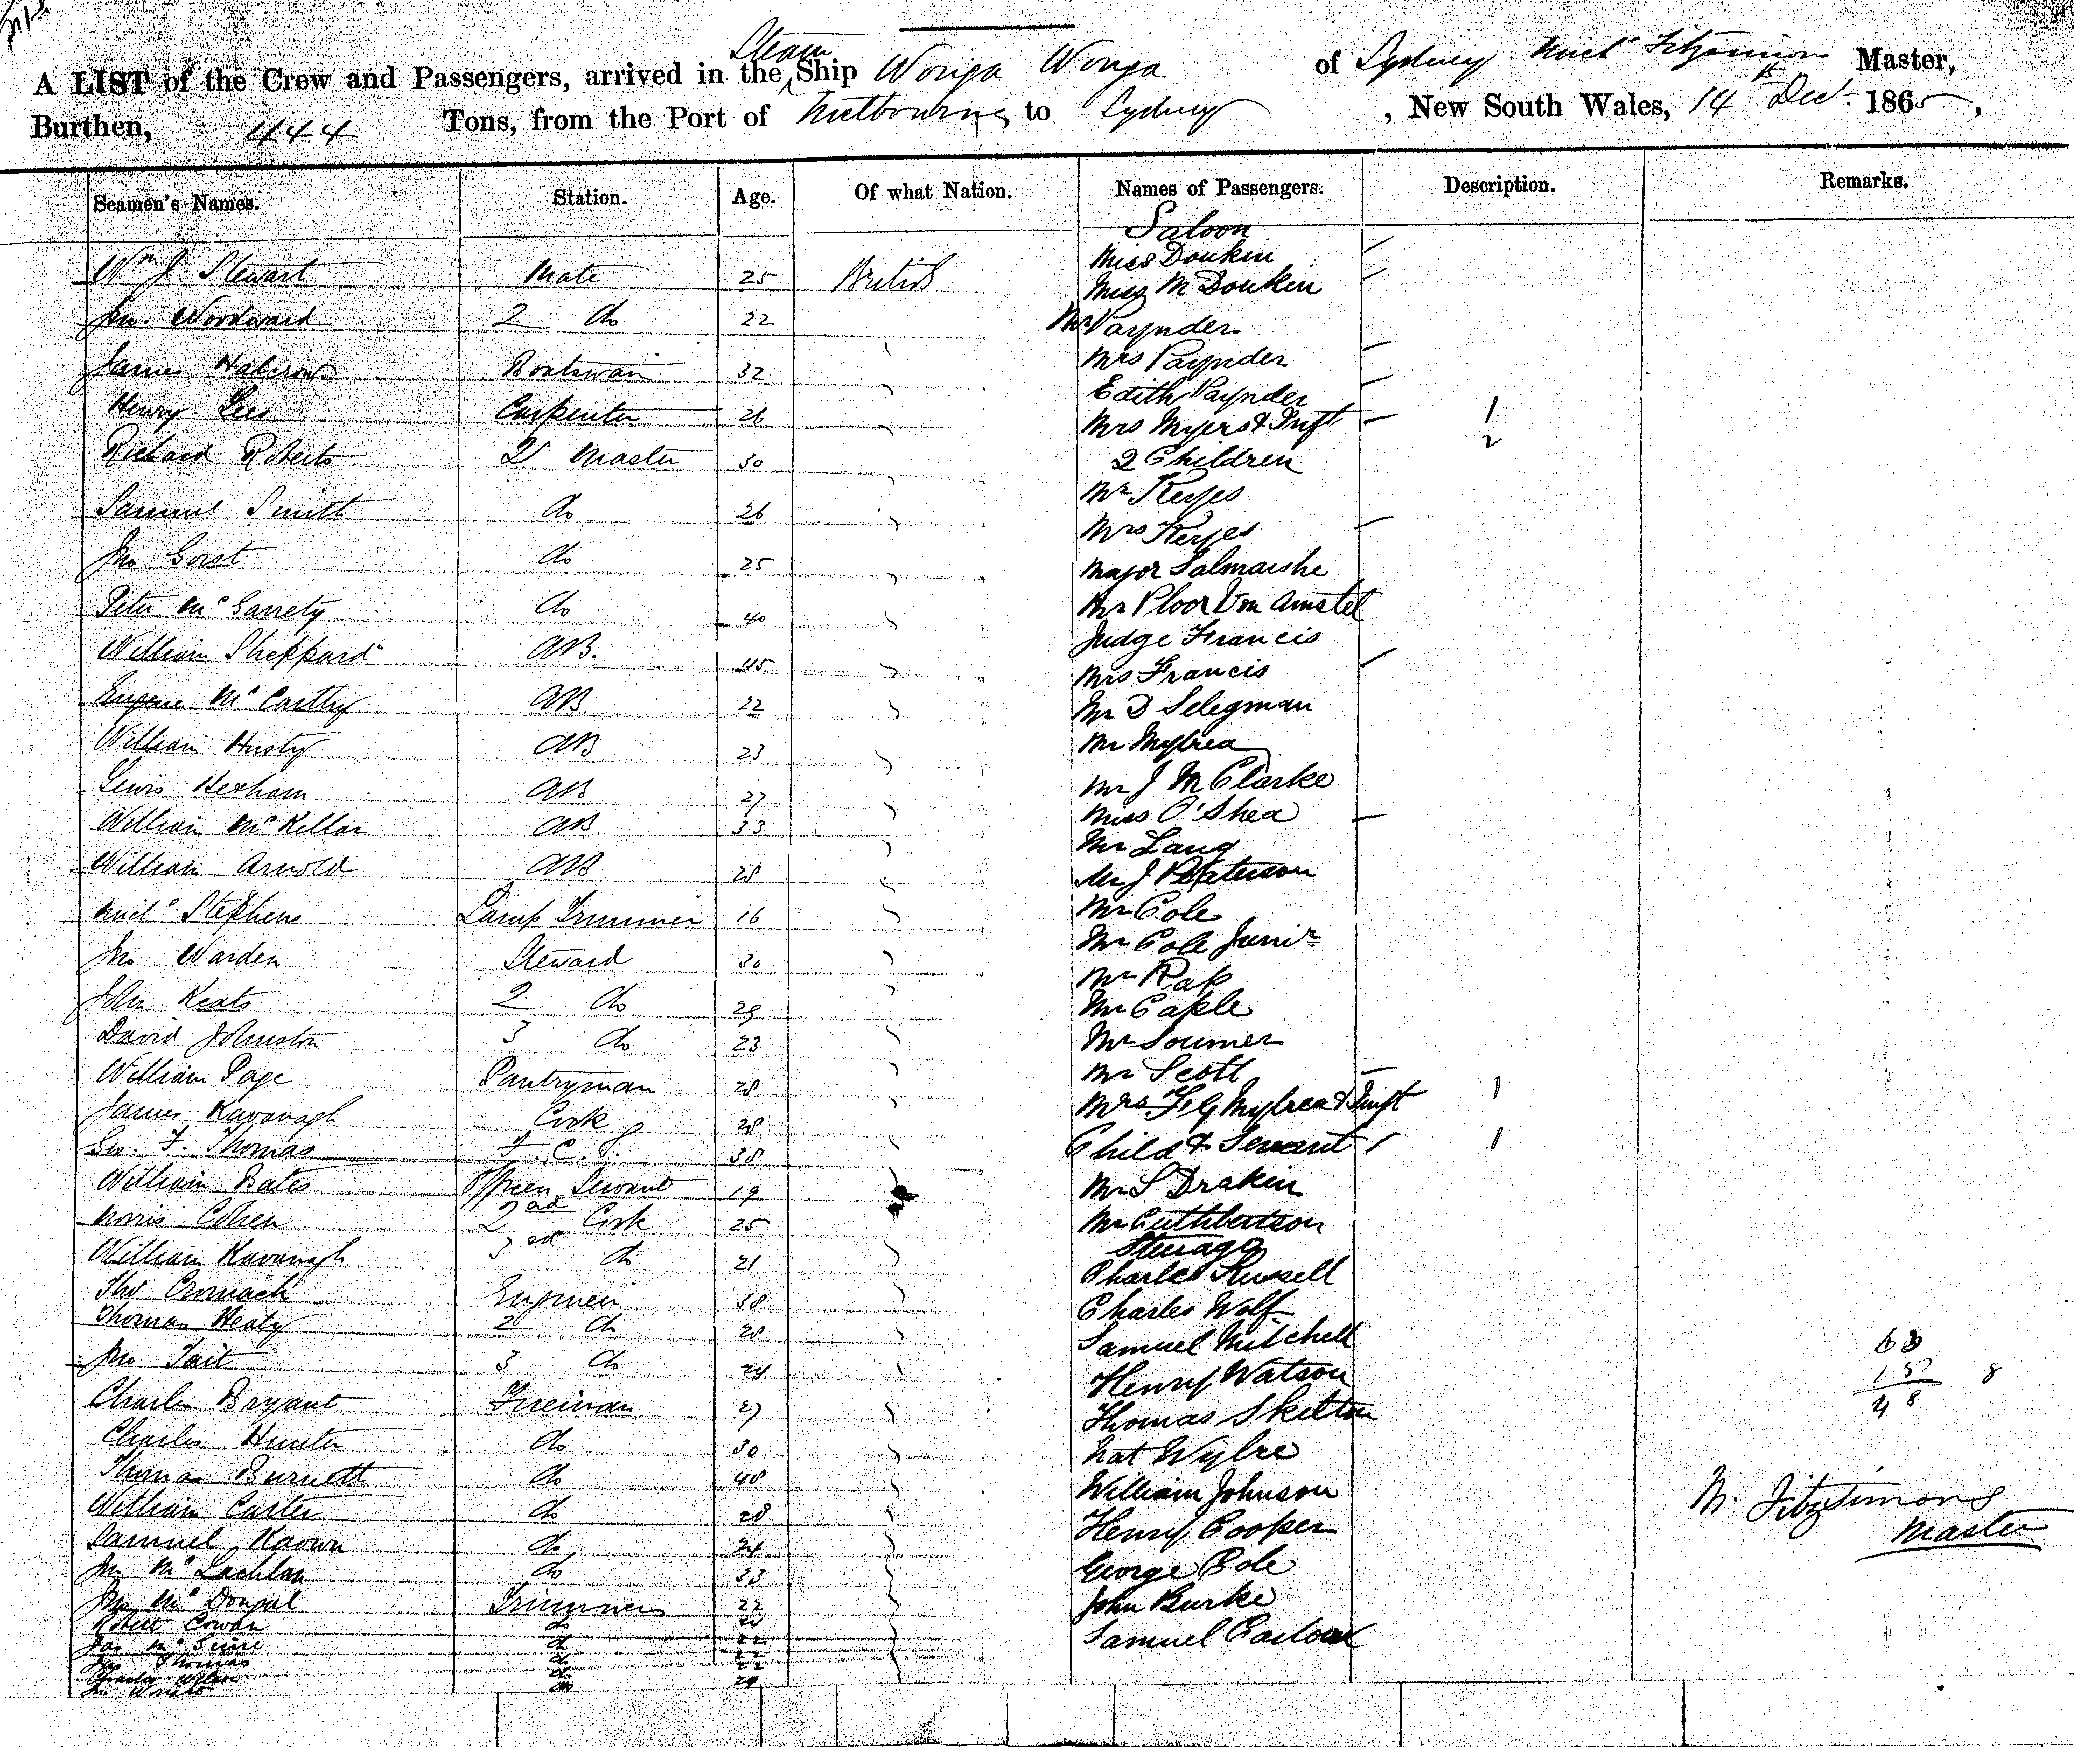 A LIST of the Crew and Passengers, arrived in the Steam Ship Wonga Wonga of Sydney Mich Fitzsimons Master,
Burthen, 444 Tons, from the Port of Melbourne to Sydney, New South Wales, 14th Decr. 1865,
Seamen's Names. Station. Age. Of what Nation. Names of Passengers. Description. Remarks.
Wm J Stewart Mate 25 British
Jno. Woodward 2 do 22
James Boatswain 32
Henry Lee Carpenter 26
Richard Roberts 2 Master 30
Samuel Smith do 26
Jno Gorst do 25
Peter McGarrety do 40
William Sheppard AB. 45
Eugene McCarthy AB 22
William Husty AB 23
Lewis Hexham AB 27
William McKellar AB 33
William Arnold AB 28
Michl Stephens Lamp Trimmer 16
Jno Warden Steward 30
John Keats 2 do 29
David Johnston 3 do 23
William Page Pantryman 28
James Kavanagh Cook 28
Geo. F. Thomas F. C. S. 38
William Bates Officers Servant 19
Morris Cohen 2nd Cook 25
William Kavanagh 3rd do 21
Thos Cromack Engineer 38
Thomas Healy 2 do 28
Jno Tait 3 do 24
Charles Bryant Fireman 27
Charles Hunter do 30
Thomas Burnett do 40
William Carter do 28
Samuel Keown do 24
Jno McLachlan do 33
Jno McDougal Trimmer 22
Robert Cowan do
Jas do 22
Jno Thomas do 22
do
do 24
Saloon
Miss Donkin
Miss M Donkin
Mr Paynder
Mrs Paynder
Edith Paynder
Mrs Myers & Inft 1
2 Children 2
Mr Keyes
Mrs Keyes
Major Salmarshe
Mr Ploor Van Amstel
Judge Francis
Mrs Francis
Mr D Selegman
Mr Mylrea
Mr J M Clarke
Miss O'Shea
Mr Lang
Mr J Paterson
Mr Cole
Mr Cole Junir
Mr Rap
Mr Caple
Mr Soumer
Mr Scott
Mrs F G Mylrea & Inft 1
Child & Servant 1
Mr S Drakin
Mr Cuthbertson
Steerage
Charles Russell
Charles Wolf
Samuel Mitchell
Henry Watson
Thomas Skelton
Nat Wylre
William Johnson
Henry Cooper
George Cole
John Burke
Samuel
M. Fitzsimons
Master